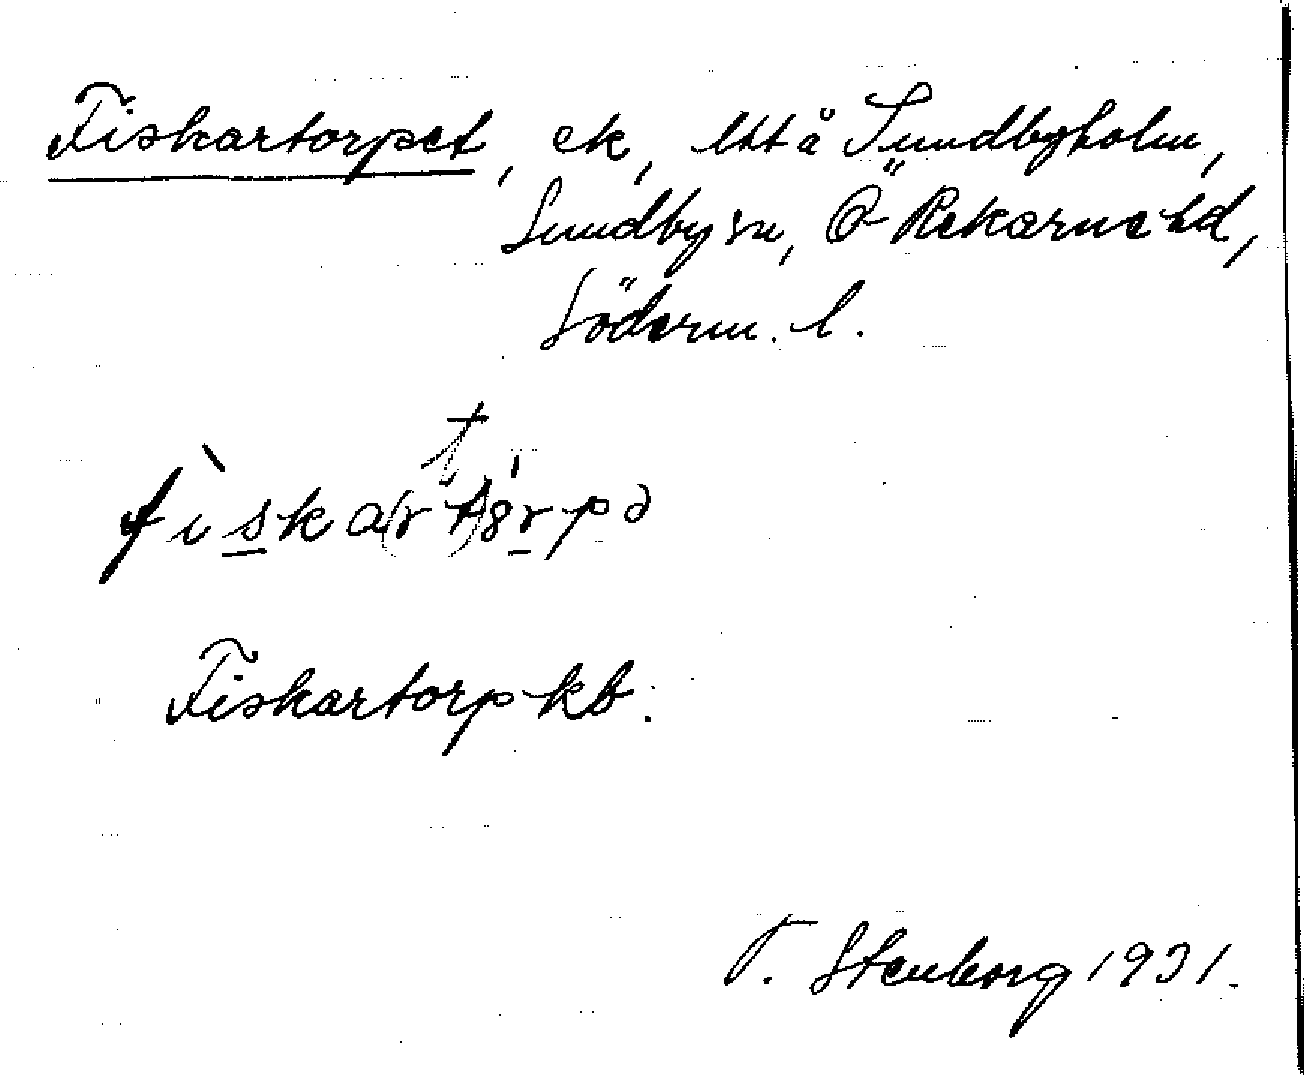 Fiskartorpet, ek, utt å Sundbyholm,
Sundby sn, Ö Rekarne hd,
Söderm. l.
Fiskartorp kb.
T. Stenborg 1931.